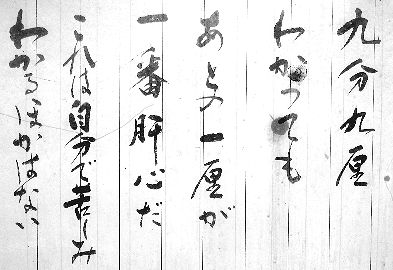 九分九厘
わかっても
あとの一厘が
一番肝心だ
これは自分で苦しみ
わかるほかはない